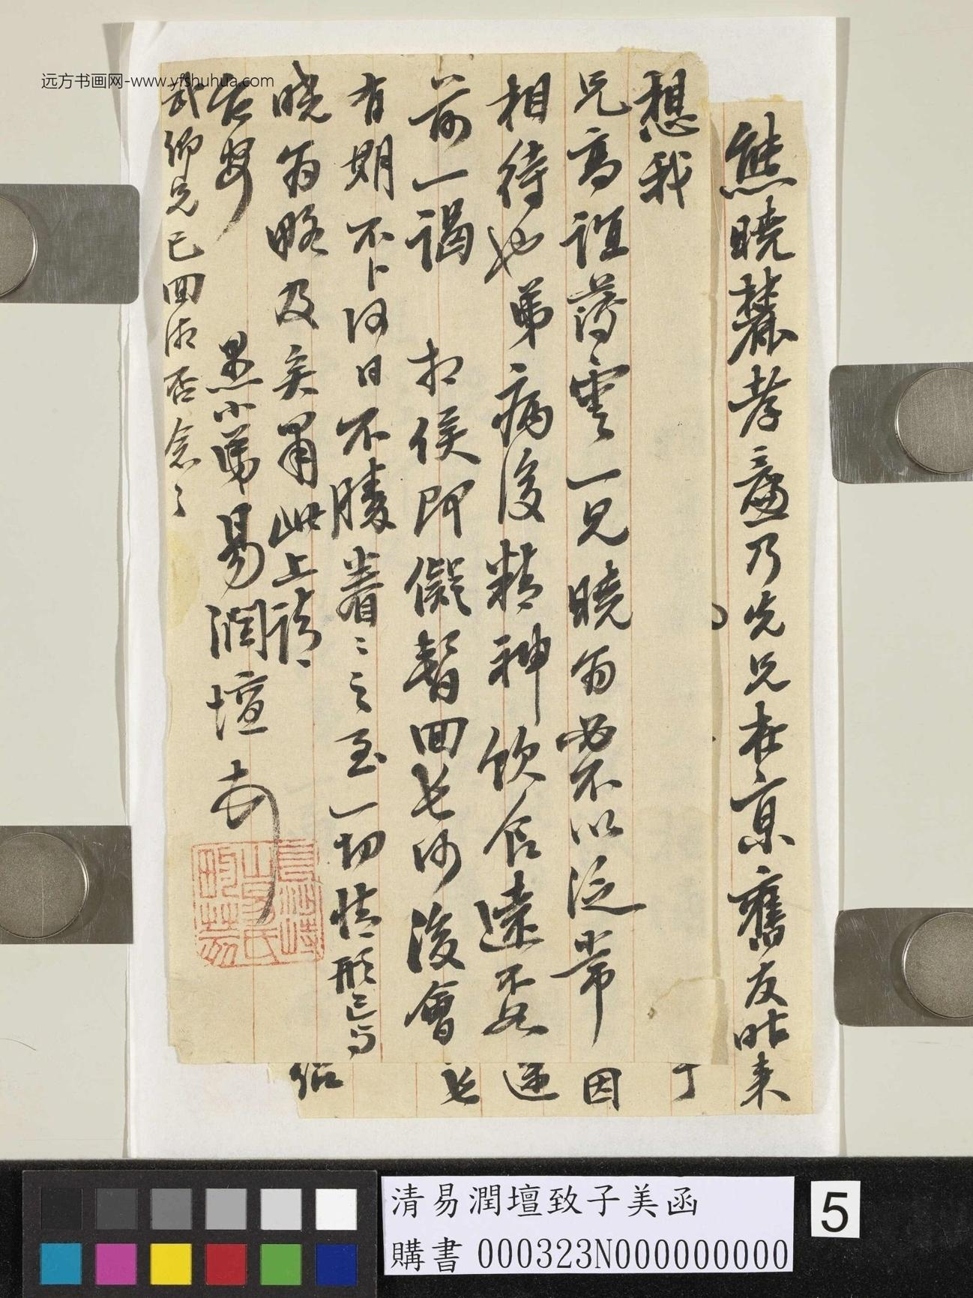 远方书画网-www.yfshuhua.com
熊曉麓孝廉乃先兄在京舊友昨來
想我
兄高誼薄雲一兄曉翁必不以泛常
相待也弟病後精神飲食遠不如
前一謁
相候即儗暫回長沙後會
有期不卜何日不勝眷々之至一切情形已與
曉翁略及矣肅此上請
台安
愚小弟易潤壇
武仰兄已回湘否念々
因
清易潤壇致子美函
購書 000323N000000000
5